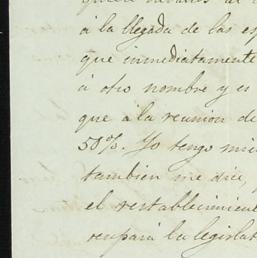 á la llegada de las es
que inmediatamente
á otro nombre y es
que á la reunion de
50%. Yo tengo mie
tambien me dice,
el restablecimien
la legislat